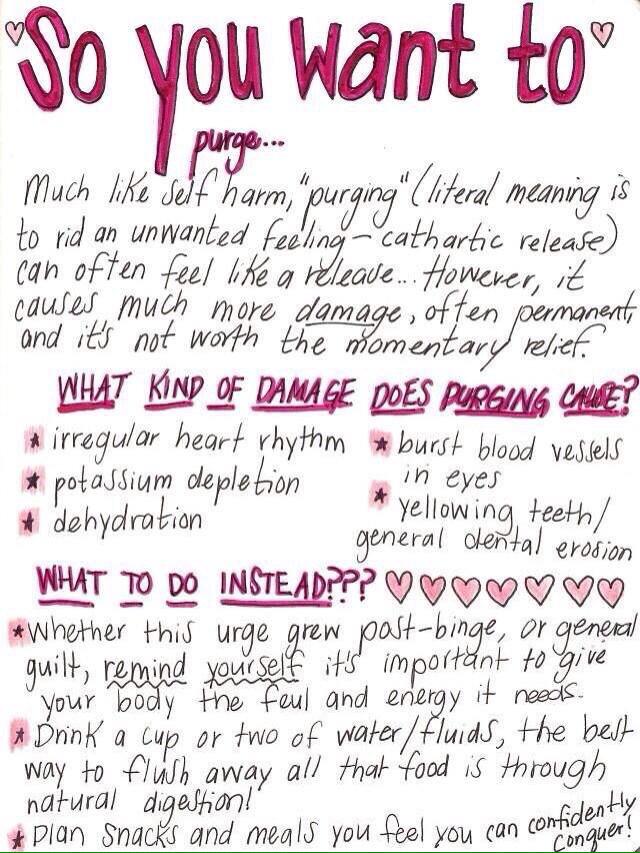 So you want to
purge...
Much like self harm, "purging" (literal meaning is
to rid an unwanted feeling - cathartic release)
can often feel like a release... However, it
causes much more damage, often permanent,
and it's not worth the momentary relief.
WHAT KIND OF DAMAGE DOES PURGING CAUSE?
* irregular heart rhythm
* potassium depletion
* dehydration
* burst blood vessels
in eyes
* yellowing teeth/
general dental erosion
WHAT TO DO INSTEAD???
* Whether this urge grew post-binge, or general
guilt, remind yourself it's important to give
your body the feul and energy it needs.
* Drink a cup or two of water/fluids, the best
way to flush away all that food is through
natural digestion!
* Plan snacks and meals you feel you can confidently
conquer!